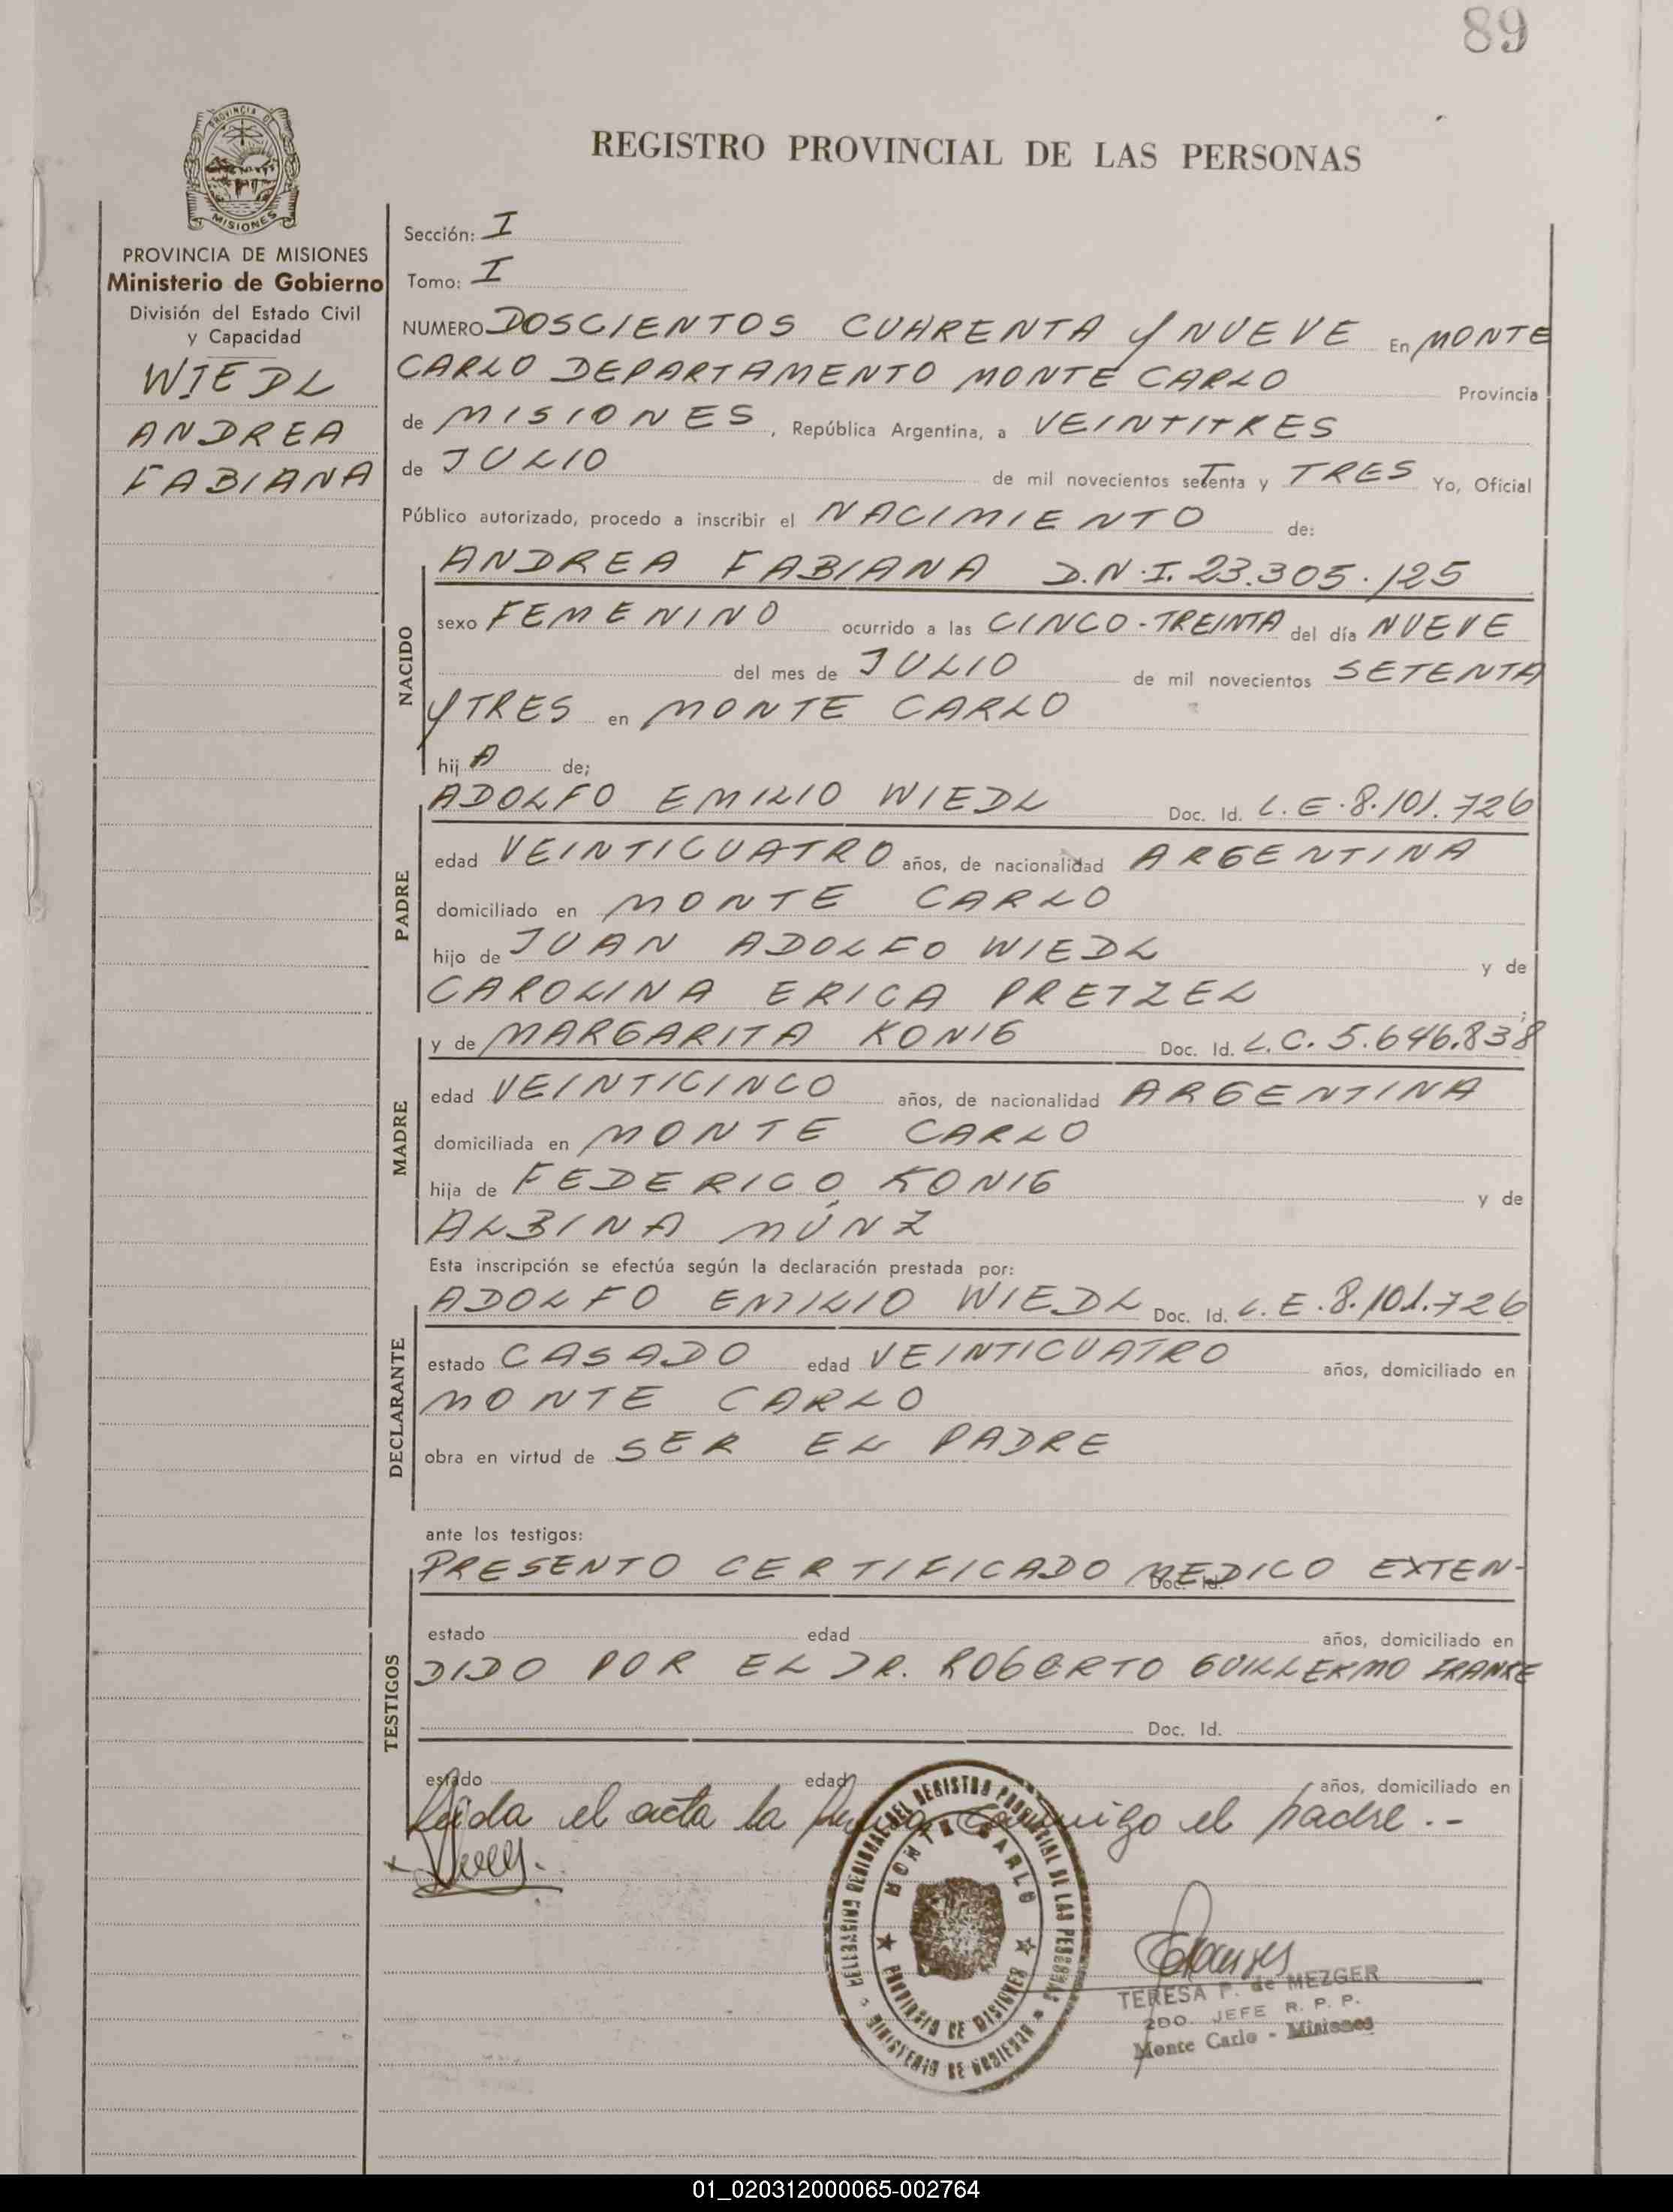 89
PROVINCIA DE
MISIONES
REGISTRO PROVINCIAL DE LAS PERSONAS
PROVINCIA DE MISIONES
Ministerio de Gobierno
División del Estado Civil
y Capacidad
WIEDL
ANDREA
FABIANA
Sección: I
Tomo: I
NUMERO DOSCIENTOS CUARENTA Y NUEVE En MONTE
CARLO DEPARTAMENTO MONTE CARLO Provincia
de MISIONES, República Argentina, a VEINTITRES
de JULIO de mil novecientos setenta y TRES Yo, Oficial
Público autorizado, procedo a inscribir el NACIMIENTO de:
NACIDO
ANDREA FABIANA D.N.I. 23.305.125
sexo FEMENINO ocurrido a las CINCO-TREINTA del día NUEVE
del mes de JULIO de mil novecientos SETENTA
Y TRES en MONTE CARLO
hij A de;
PADRE
ADOLFO EMILIO WIEDL Doc. Id. L.E.8.101.726
edad VEINTICUATRO años, de nacionalidad ARGENTINA
domiciliado en MONTE CARLO
hijo de JUAN ADOLFO WIEDL y de
CAROLINA ERICA PRETZEL ;
MADRE
y de MARGARITA KONIG Doc. Id. L.C. 5.646.838
edad VEINTICINCO años, de nacionalidad ARGENTINA
domiciliada en MONTE CARLO
hija de FEDERICO KONIG y de
ALBINA MÜNZ
Esta inscripción se efectúa según la declaración prestada por:
DECLARANTE
ADOLFO EMILIO WIEDL Doc. Id. L.E.8.101.726
estado CASADO edad VEINTICUATRO años, domiciliado en
MONTE CARLO
obra en virtud de SER EL PADRE
ante los testigos:
TESTIGOS
PRESENTO CERTIFICADO MEDICO EXTEN-
Doc. Id.
estado edad años, domiciliado en
DIDO POR EL DR. ROBERTO GUILLERMO FRANKE
Doc. Id.
estado edad años, domiciliado en
Leida el acta la firma conmigo el padre .-
DEL REGISTRO PROVINCIAL DE LAS PERSONAS
MINISTERIO DE GOBIERNO
MONTE CARLO
PROVINCIA DE MISIONES
TERESA P. de MEZGER
2DO. JEFE R. P. P.
Monte Carlo - Misiones
01_020312000065-002764